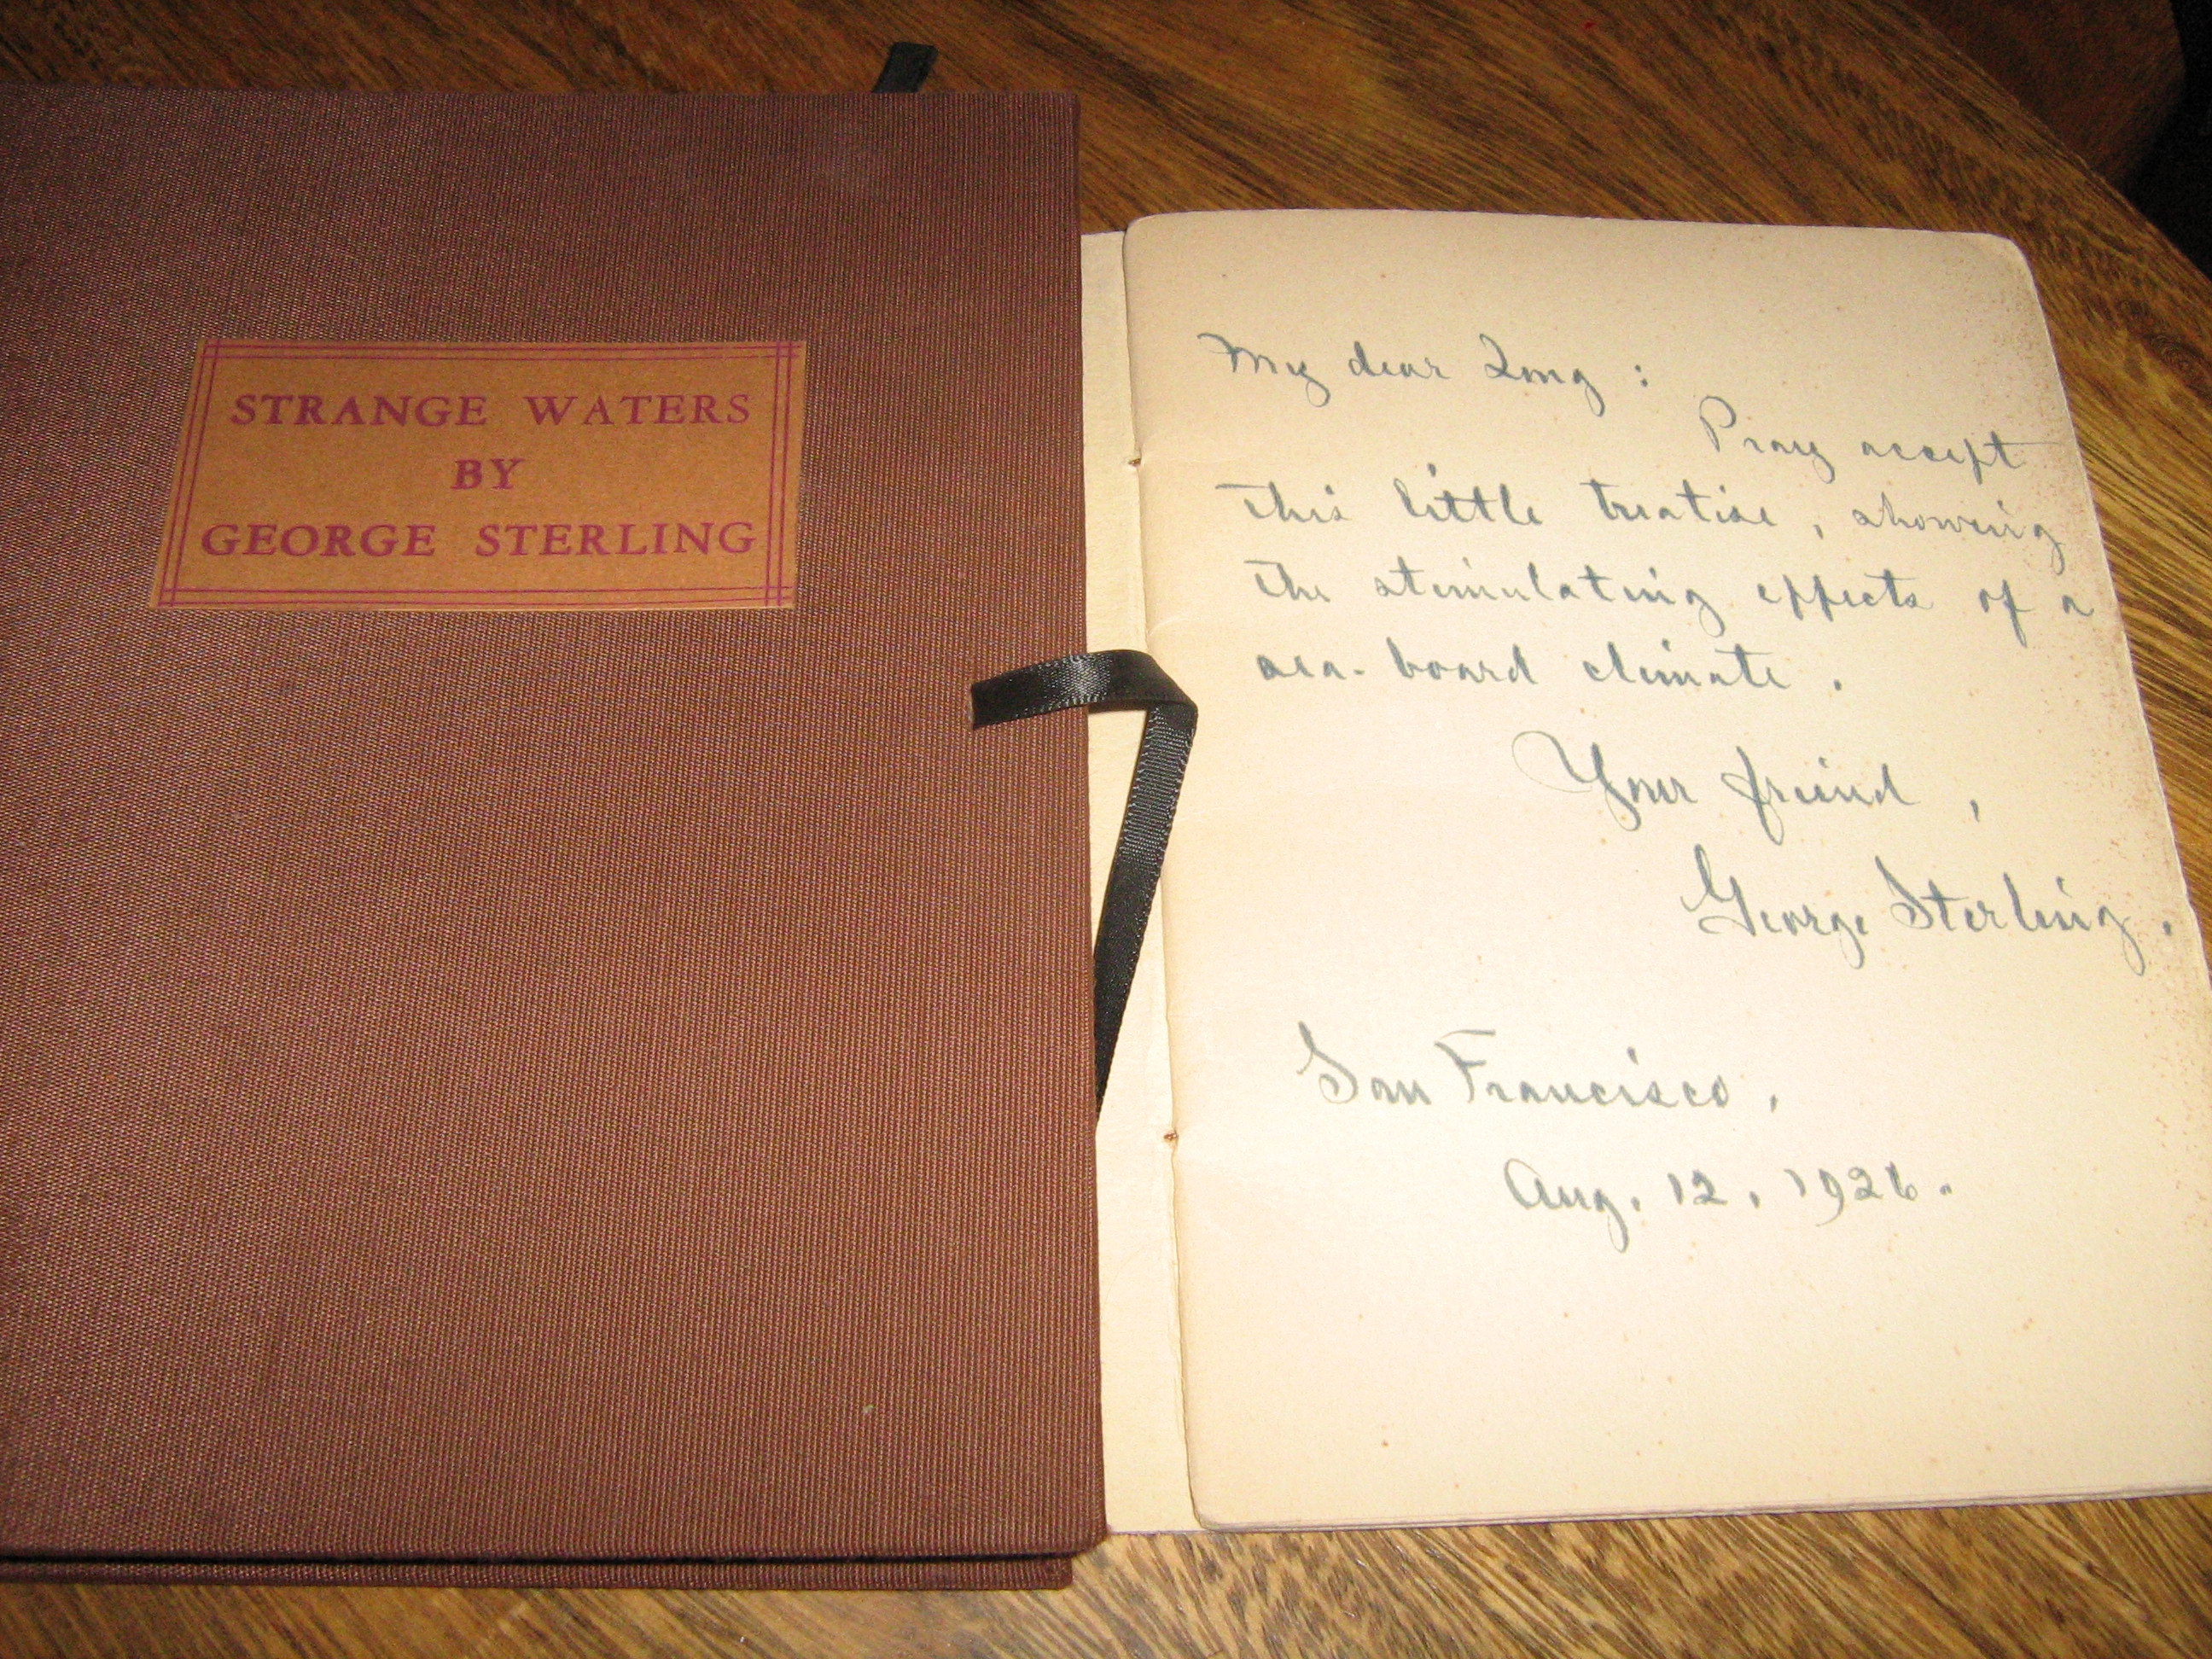 STRANGE WATERS
BY
GEORGE STERLING
My dear Long :
Pray accept
this little treatise, showing
the stimulating effects of a
sea-board climate.
Your friend,
George Sterling.
San Francisco,
Aug. 12, 1926.